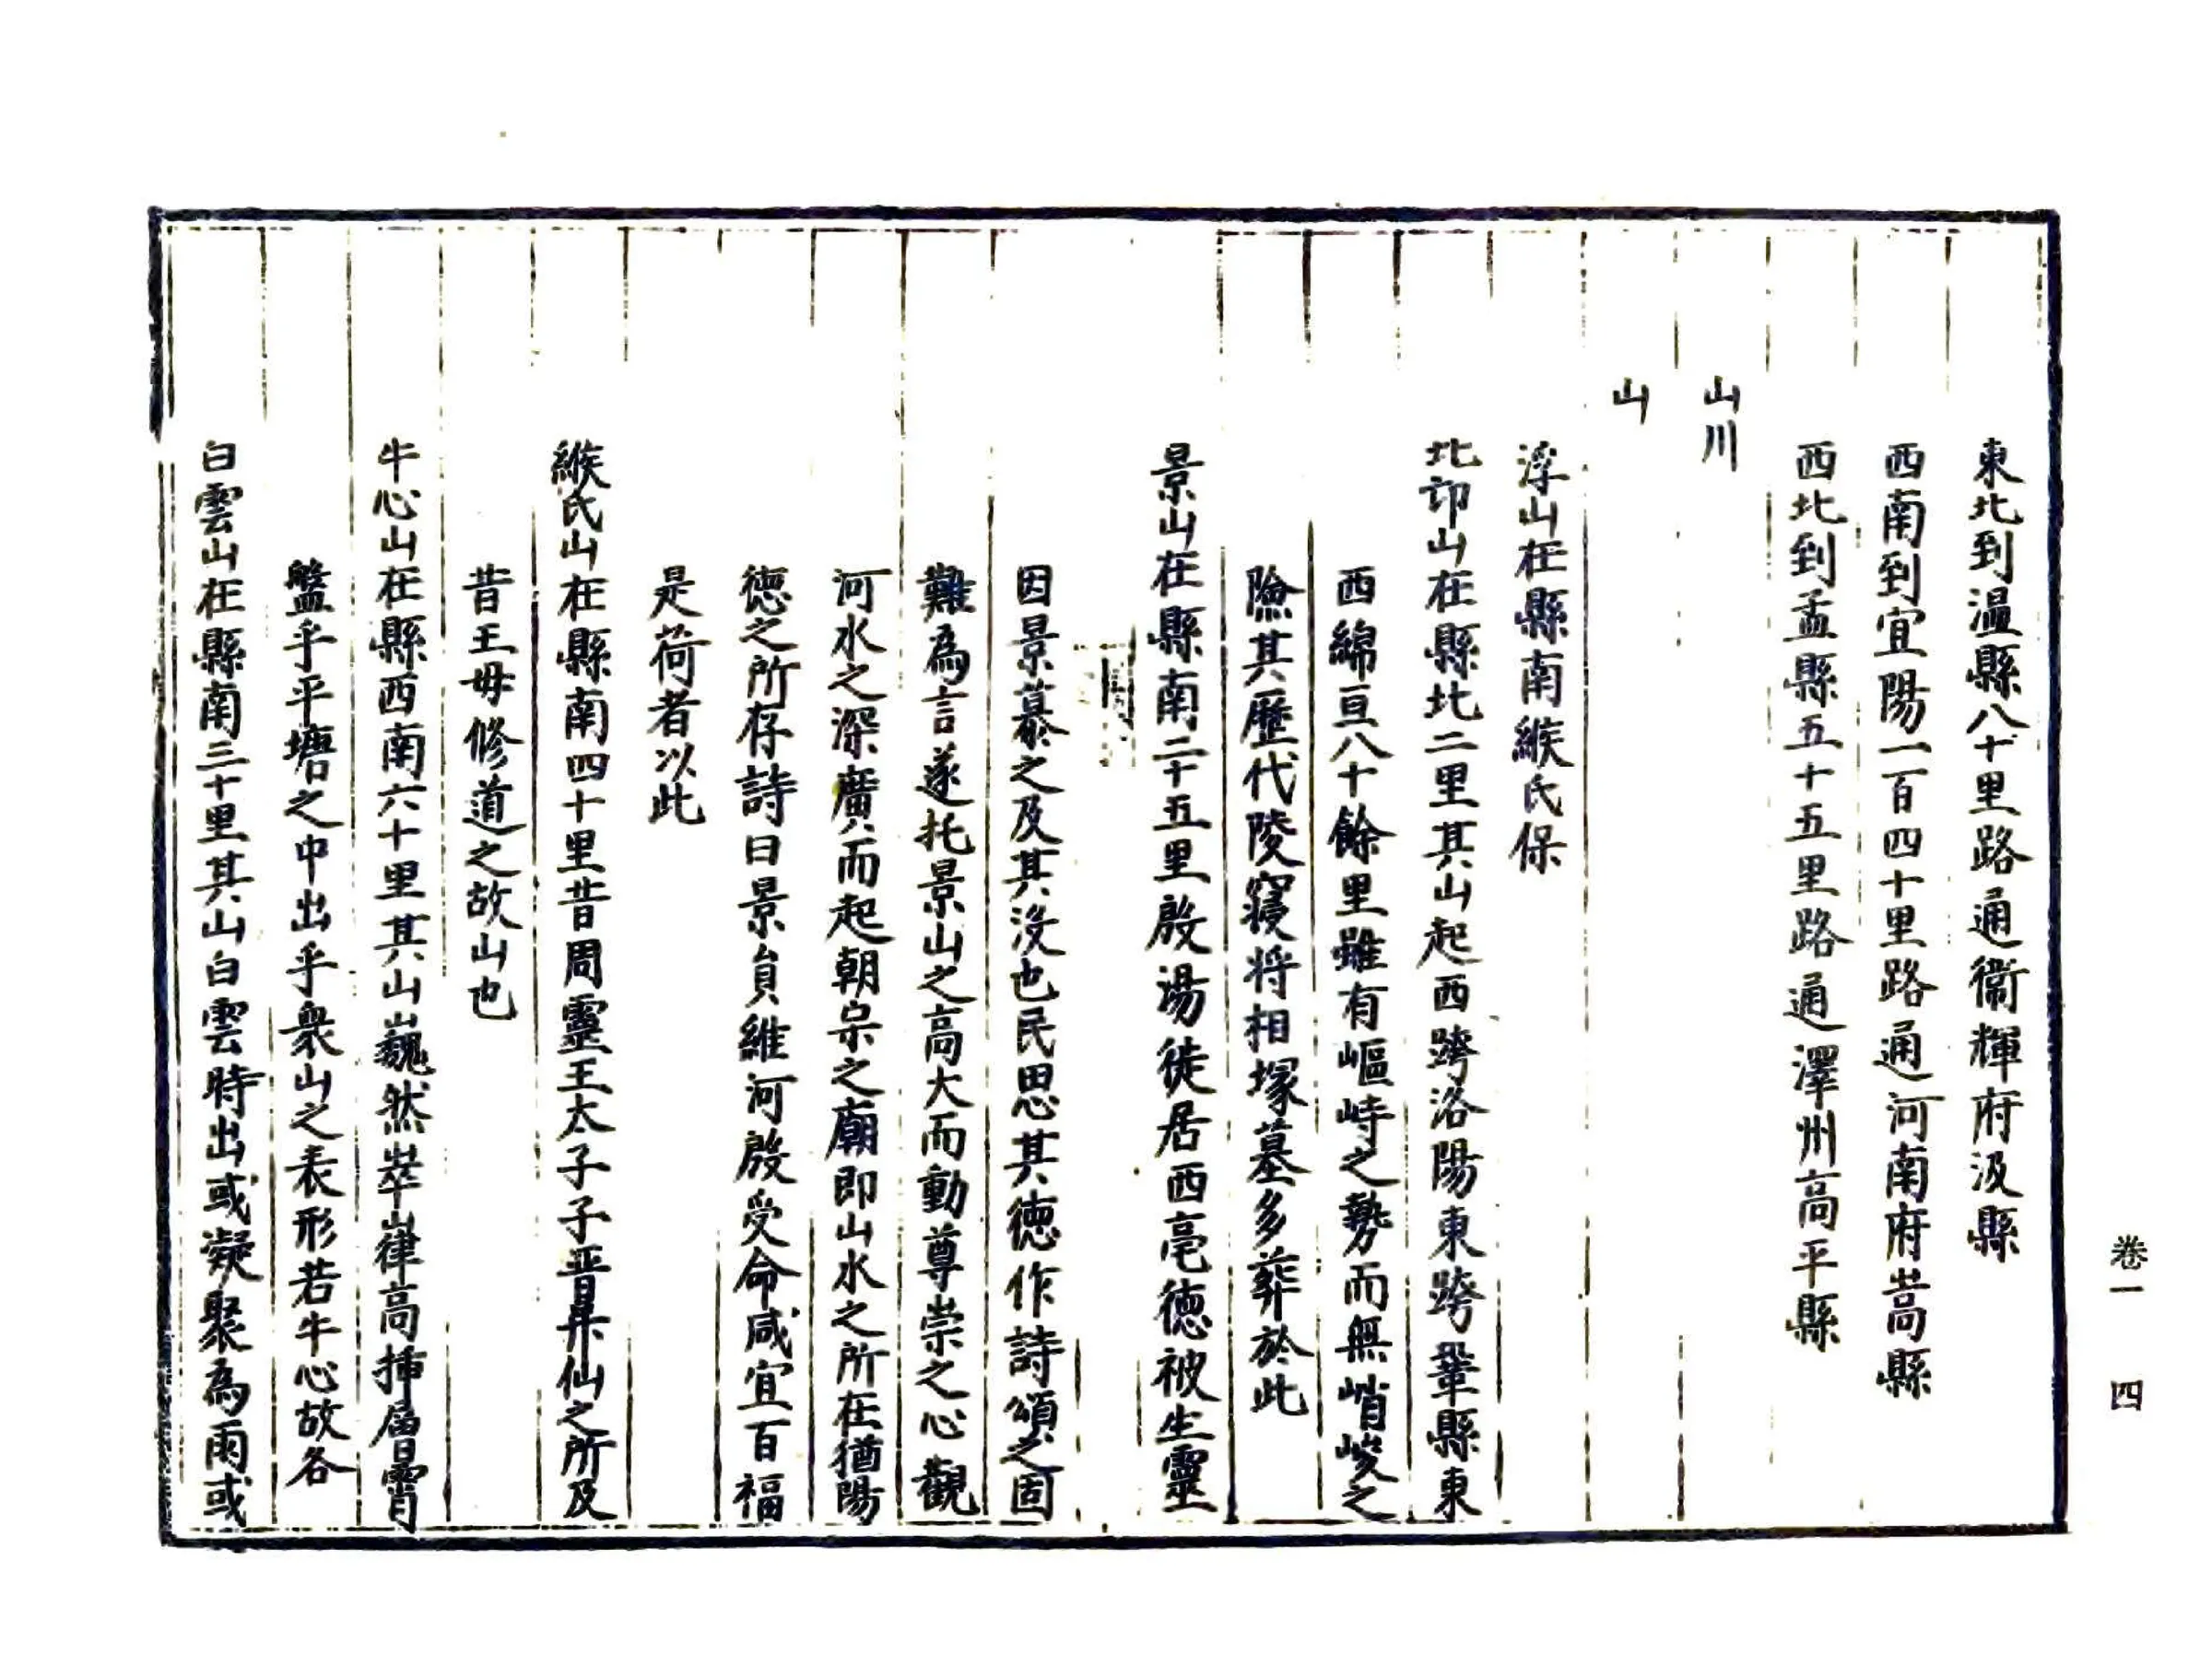 東北到溫縣八十里路通衞輝府汲縣
西南到宜陽一百四十里路通河南府嵩縣
西北到孟縣五十五里路通澤州高平縣
山川
山
浮山在縣南緱氏保
北邙山在縣北二里其山起西跨洛陽東跨鞏縣東
西綿亘八十餘里雖有嶇峙之勢而無峭峻之
險其歷代陵寢將相塚墓多葬於此
景山在縣南二十五里殷湯徙居西亳德被生靈
因景慕之及其沒也民思其德作詩頌之固
難為言遂托景山之高大而動尊崇之心觀
河水之深廣而起朝宗之廟即山水之所在猶陽
德之所存詩曰景員維河殷受命咸宜百福
是荷者以此
緱氏山在縣南四十里昔周靈王太子子晋昇仙之所及
昔王毋修道之故山也
牛心山在縣西南六十里其山巍然崒嵂高揷層霄
盤乎平塘之中出乎衆山之表形若牛心故各
白雲山在縣南三十里其山白雲時出或凝聚為雨或
卷一
四